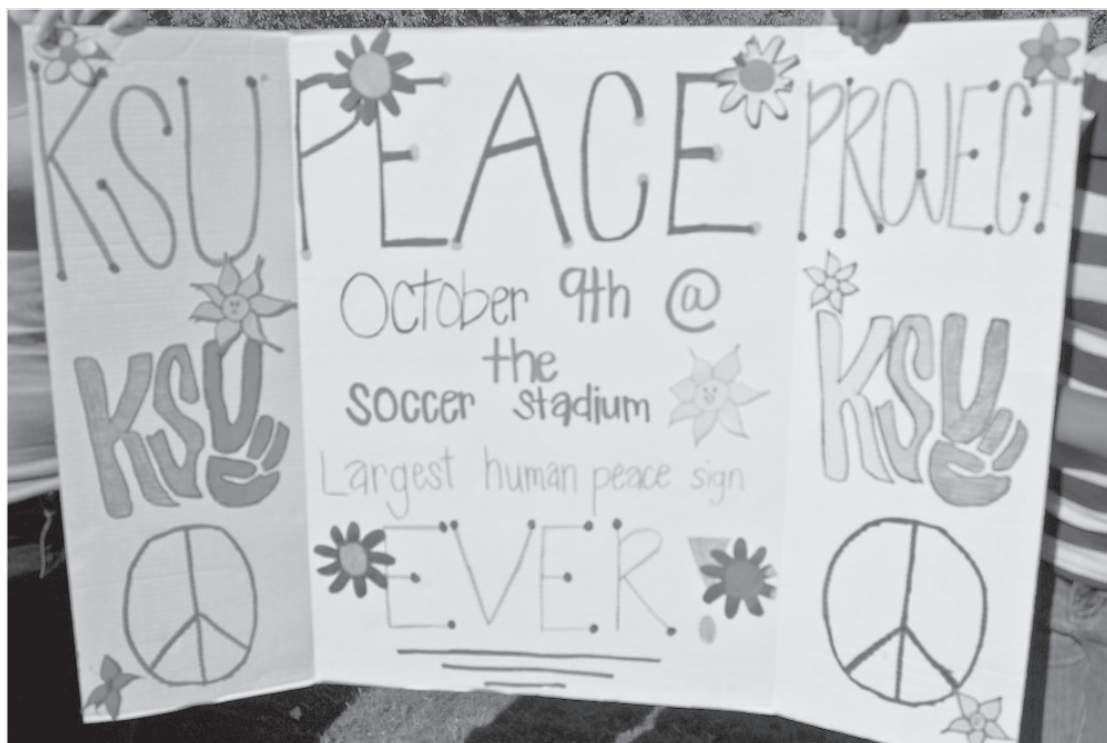 KSU PEACE PROJECT
October 9th @
the
soccer stadium
Largest human peace sign
EVER!
KSU
KSU